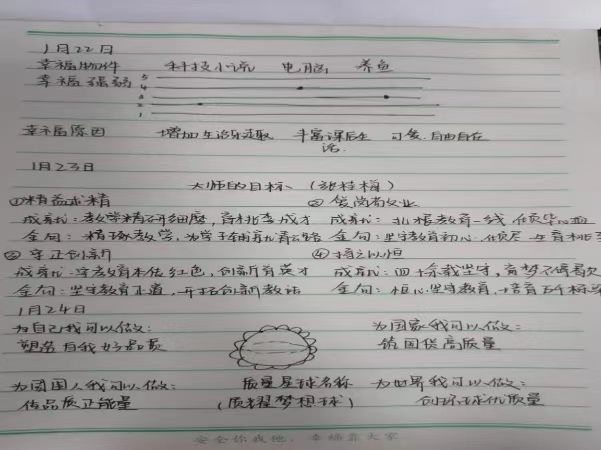 1月22日
幸福物件 科技小说 电脑 养鱼
幸福强弱 5
4
3
2
1
幸福原因 增加生活乐趣 丰富课后生活 可爱、自由自在
1月23日
大师的目标、(张桂梅)
①精益求精 ② 爱岗敬业
成就:教学精研细磨,育桃李成才 成就:扎根教育一线 倾华心血
金句:精琢教学,为学子铺就青云路 金句:坚守教育初心,倾尽 育桃李
③ 守正创新 ④持之以恒
成就:守教育本位红色,创新育英才 成就:四十余载坚守,育梦不停
金句:坚守教育正道,开拓创新教法 金句:恒心坚守教育,培育万千
1月24日
为自己我可以做: 为国家我可以做:
塑造自我好品质 筑国货高质量
为周围人我可以做: 质量星球名称 为世界我可以做:
传品质正能量 (质耀梦想球) 创环球优质量
安全你我他,幸福靠大家